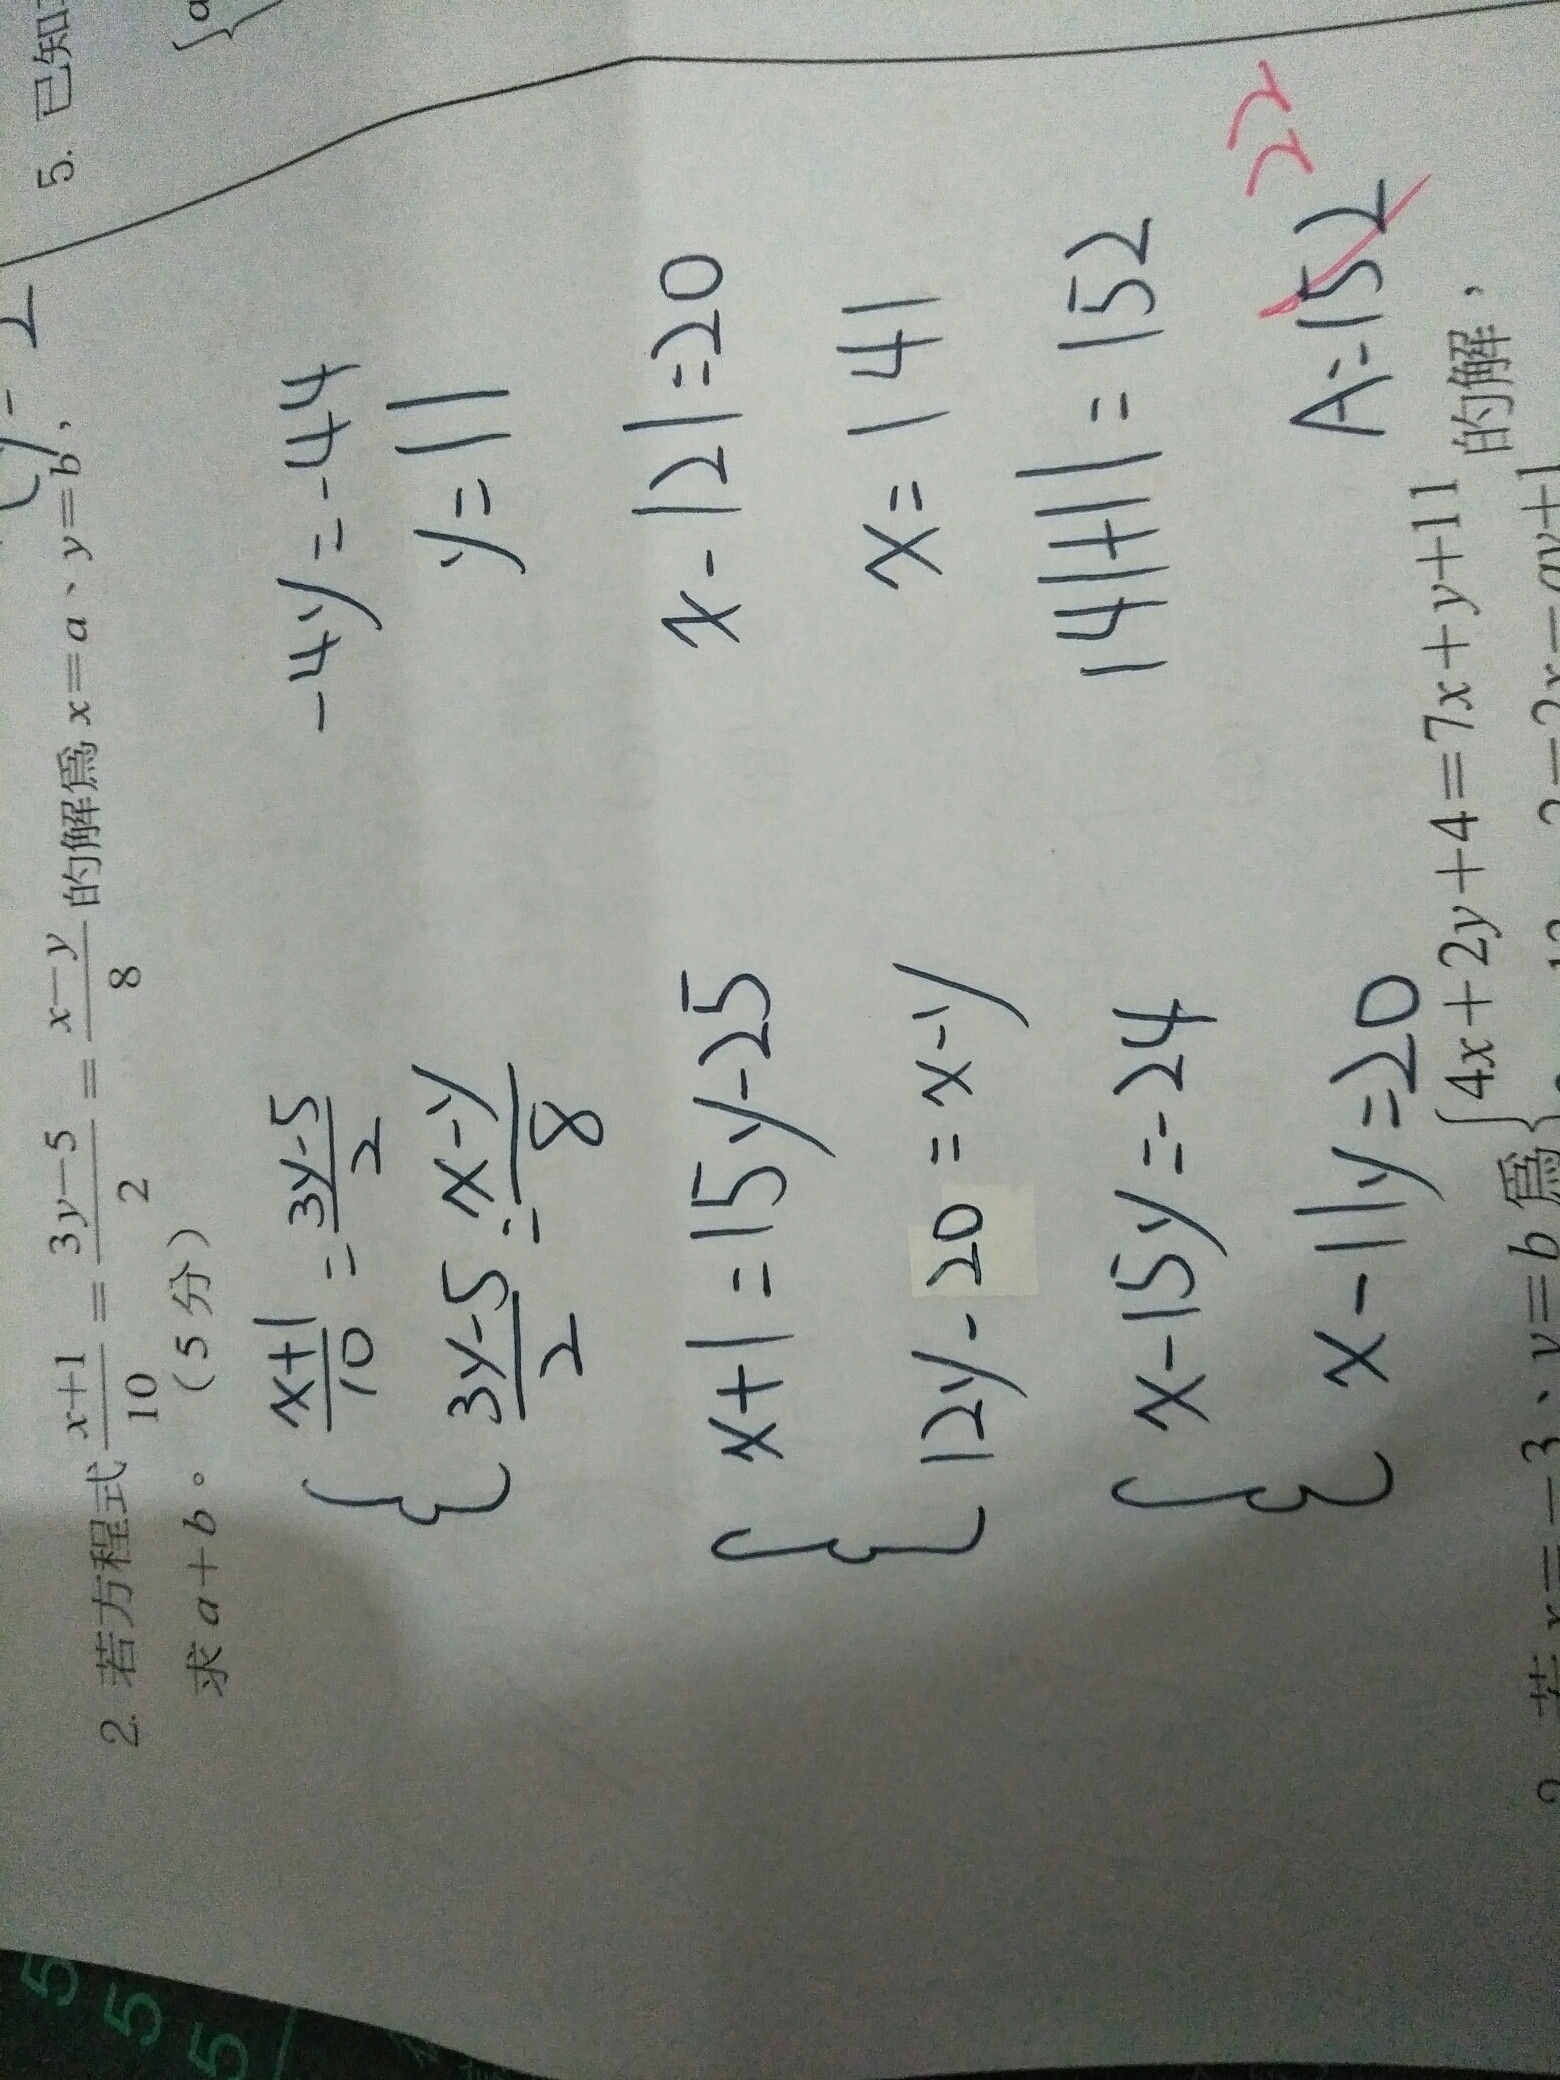 5. 已知
2. 若方程式 x+1/10 = 3y-5/2 = x-y/8 的解為 x=a、y=b,
求 a+b。(5分)
{ x+1/10 = 3y-5/2
3y-5/2 = x-y/8
{ x+1=15y-25
12y-20=x-y
{ x-15y=-24
x-11y=20
-4y=-44
y=11
x-121=20
x=141
141+11=152
22
A=152
{4x+2y+4=7x+y+11 的解,
若 x=-3、y=b 為
2=2x-ay+1
5
5
5